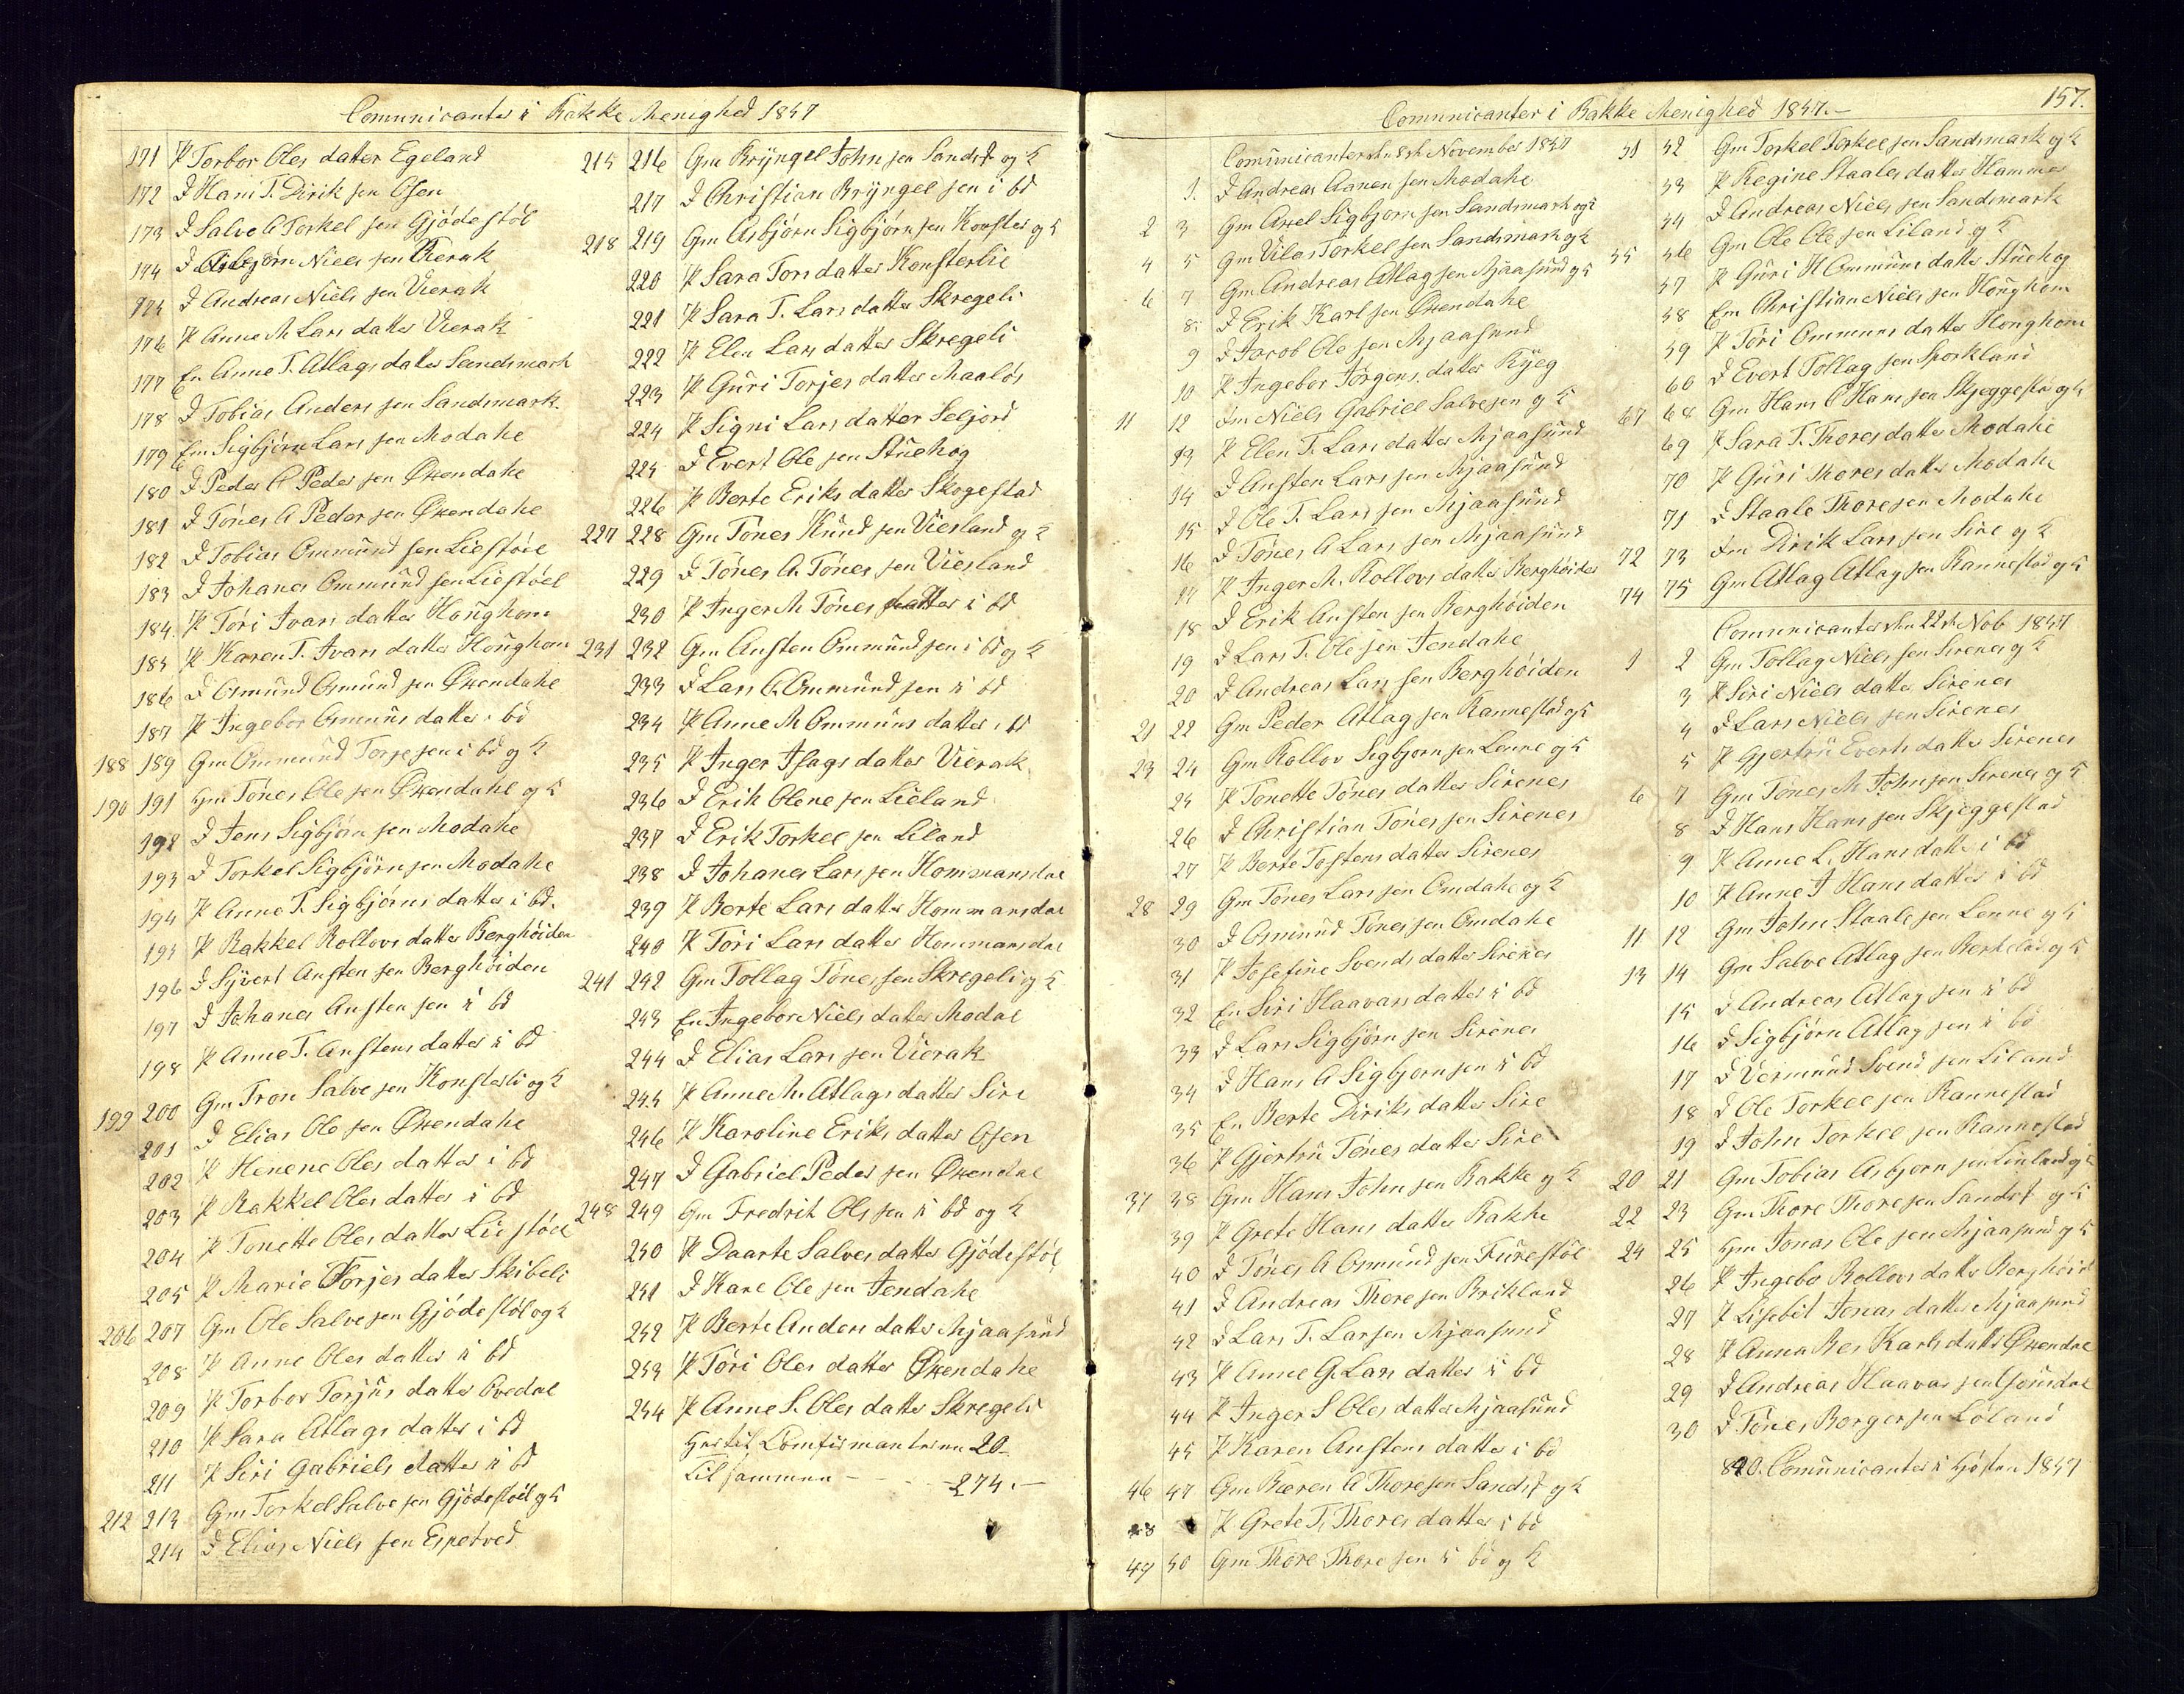 Comunicanter i Bakke Menighed 1857
171 P Torbor Oles datter Egeland
172 D Hans T. Dirik sen Osen
173 D Salve O Torkel sen Gjödestöl
174 D Niels sen Vierak
175 D Andreas Niels sen Vierak
176 P Anne M Lars datter Vierak
177 En Anne T. Atlags datter Sandsmark
178 D Tobias Anders sen Sandsmark
179 Em Sigbjörn Lars sen Modahe
180 D Peder O Peder sen Øxendahe
181 D Tönes A Peder sen Øxendahe
182 D Tobias Ommund sen Liestöel
183 D Johanes Ommund sen Liestöel
184 P Töri Ivars datter Honghom
185 P Karen T. Ivars datter Honghom
186 D Osmund Osmund sen Øxendahe
187 P Ingebor Osmuns datter i bd
188 189 Gm Ommund Torje sen i bd og K
190 191 Gm Tönes Ole sen Øxendahe og K
192 D Jens Sigbjörn sen Modahe
193 D Torkel Sigbjörn sen Modahe
194 P Anne T. Sigbjörns datter i bd.
195 P Rakkel Rollovs datter Berghöiden
196 D Sÿvert Austen sen Berghöiden
197 D Johanes Austen sen i bd
198 P Anne T. Austens datter i bd
199 200 Gm Tron Salve sen Konsterli og K
201 D Elias Ole sen Øxendahe
202 P Henene Oles datter i bd
203 P Rakkel Oles datter i bd
204 P Tonette Oles datter Liestöel
205 P Marie Torjes datter Skibeli
206 207 Gm Ole Salve sen Gjödestöl og K
208 P Anne Oles datter i bd
209 P Torbor Torjus datter Ovedal
210 P Sara Atlags datter i bd
211 P Siri Gabriels datter i bd
212 213 Gm Torkel Salve sen Gjödestöel og K
214 D Elias Niels sen Espetved
215 216 Gm Brÿngel John sen Sandst og K
217 D Christian Brÿngel sen i bd
218 219 Gm Asbjörn Sigbjörn sen Konster og K
220 P Sara Tors datter Konsterlie
221 P Sara T. Lars datter Skregeli
222 P Elen Lars datter Skregeli
223 P Guri Torjes datter Maalös
224 P Signi Lars datter Seljord
225 D Evert Ole sen Stuehog
226 P Berte Eriks datter Skogestad
227 228 Gm Tönes Knud sen Viesland og K
229 D Tönes A. Tönes sen Viesland
230 P Inger M Tönes datter i bd
231 232 Gm Austen Ommund sen i bd og K
233 D Lars O. Ommund sen i bd
234 P Anne M Ommuns datter i bd
235 P Inger Aslags datter Vierak
236 D Erik Olene sen Lieland
237 D Erik Torkel sen Liland
238 D Johanes Lars sen Hommansdal
239 P Berte Lars datter Hommansdal
240 P Töri Lars datter Hommansdal
241 242 Gm Tollag Tönes sen Skregeli og K
243 En Ingebor Niels datter Modal
244 D Elias Lars sen Vierak
245 P Anne M. Atlags datter Sire
246 P Karoline Eriks datter Osen
247 D Gabriel Peder sen Øxendal
248 249 Gm Fredrik Ols sen i bd og K
250 P Daarte Salves datter Gjödestöl
251 D Kare Ole sen Jendahe
252 P Berte Anders datter Mjaasund
253 P Töri Oles datter Øxendahe
254 P Anne S. Oles datter Skregeli
Hertil Comfirmanterne 20
Til sammen - - 274.-
157.
Comunicanter i Bakke Menighed 1857.-
Comunicanter den 8de November 1857
1. D Andreas Aanen sen Modahe
2 3 Gm Axel Sigbjorn sen Sandsmark og K
4 5 Gm Vilas Torkel sen Sandsmark og K
6 7 Gm Andreas Atlag sen Mjaasund og K
8 D Erik Karl sen Øxendahe
9 D Jacob Ole sen Mjaasund
10 P Ingebor Jörgens datter Rÿeg
11 12 Im Niels Gabriel Salvesen og K
13 P Elen T. Lars datter Mjaasund
14 D Austen Lars sen Mjaasund
15 D Ole T. Lars sen Mjaasund
16 D Tönes A Lars sen Mjaasund
17 P Inger M. Rollovs datter Berghöiden
18 D Erik Austen sen Berghöiden
19 D Lars T. Ole sen Jendahe
20 D Andreas Lars sen Berghöiden
21 22 Gm Peder Atlag sen Rannestad og K
23 24 Gm Rollov Sigbjorn sen Lenne og K
25 P Tonette Tönes datter Sirenes
26 D Christian Tönes sen Sirenes
27 P Berte Tostens datter Sirenes
28 29 Gm Tönes Lars sen Omdahe og K
30 D Osmund Tönes sen Omdahe
31 P Josefine Svends datter Sirenes
32 En Siri Haavars datter i bd
33 D Lars Sigbjörn sen Sirenes
34 D Hans A Sigbjorn sen i bd
35 En Berte Diriks datter Sire
36 P Gjertru Tönes datter Sire
37 38 Gm Hans John sen Bakke og K
39 P Grete Hans datter Bakke
40 D Tönes A Osmund sen Furestöl
41 D Andreas Thore sen Brikland
42 D Lars T. Larsen Mjaasund
43 P Anne G. Lars datter i bd
44 P Inger S Oles datter Mjaasund
45 P Karen Austens datter i bd
46 47 Gm Bæren A Thoresen Sandst og K
48 P Grete T. Thores datter i bd
49 50 Gm Thore Thore sen i bd og K
51 52 Gm Torkel Torkel sen Sandsmark og K
53 P Regine Staales datter Hammer
54 D Andreas Niels sen Sandsmark
55 56 Gm Ole Ole sen Liland og K
57 P Guri H Ommuns datter Stuehog
58 Em Christian Niels sen Honghom
59 P Töri Ommuns datter Honghom
60 D Evert Tollag sen Sporkland
67 68 Gm Hans O Hans sen Skjeggestad og K
69 P Sara T. Thores datter Modahe
70 P Guri Thores datter Modahe
71 D Staale Thoresen Modahe
72 73 Im Dirik Lars sen Sire og K
74 75 Gm Atlag Atlag sen Rannestad og K
Comunicanter den 22de Nob 1857
1 2 Gm Tollag Niels sen Sirenes og K
3 P Siri Niels datter Sirenes
4 D Lars Niels sen Sirenes
5 P Gjertru Everts datter Sirenes
6 7 Gm Tönes M Johnsen Sirenes og K
8 D Hans Hans sen Skjeggestad
9 P Anne L. Hans datter i bd
10 P Anne J Hans datter i bd
11 12 Gm John Staale sen Lenne og K
13 14 Gm Salve Atlag sen Berkelad og K
15 D Andreas Atlag sen i bd
16 D Sigbjörn Atlag sen i bd
17 D Vermund Svend sen Liland
18 D Ole Torkel sen Rannestad
19 D John Torkel sen Rannestad
20 21 Gm Tobias Asbjorn sen Linland og K
22 23 Gm Thore Thoresen Sandst og K
24 25 Gm Jonas Ole sen Mjaasund og K
26 P Ingebor Rollovs datter Berghöid
27 P Lisebet Jonas datter Mjaasund
28 P Anna Bes Karls datter Øxendal
29 D Andreas Haavar sen Gosundal
30 D Tönes Borgersen Löland
890. Comunicanter i Hösten 1857